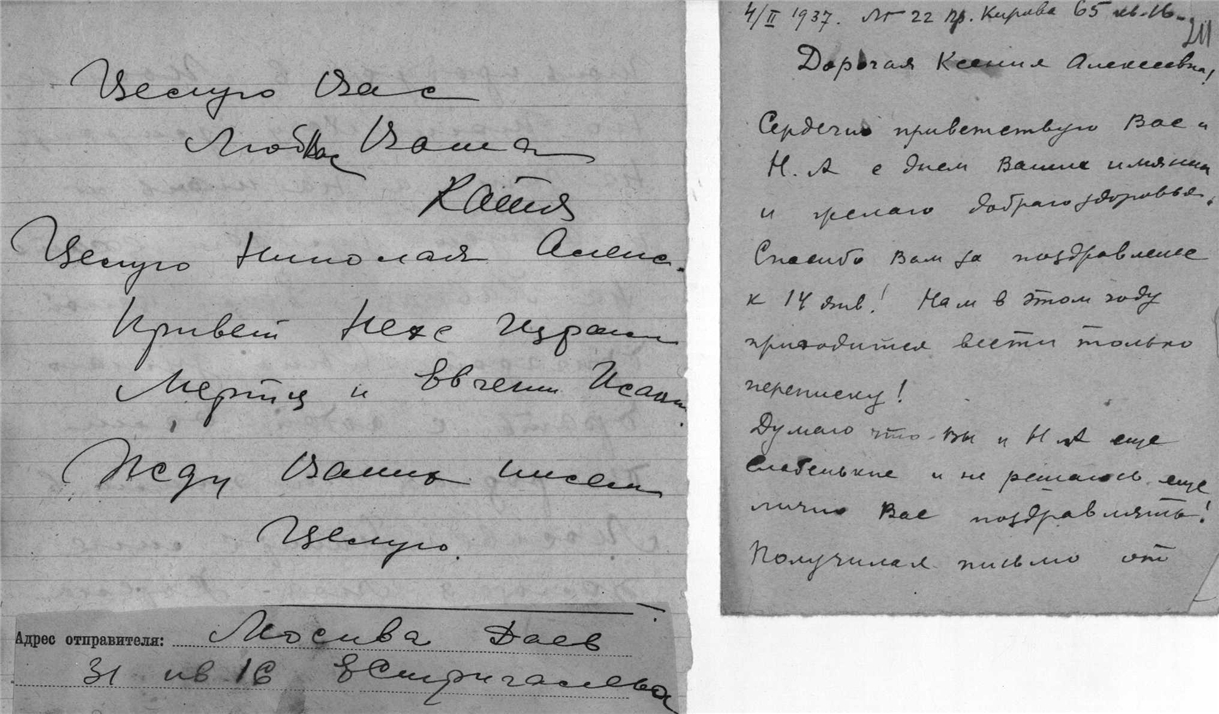 Целую Вас
Люб. Вас Ваша
Катя
Целую Николая Алекс.
Привет
и Евгении Исаак.
Жду Ваших писем
Целую.
Адрес отправителя: Москва Даев
31 кв 16 Е Стригалева
4/II 1937. 22 пр. Кирова 65 кв. 16.
211
Дорогая Ксения Алексеевна!
Сердечно приветствую Вас и
Н. А с днем Ваших имянин
и желаю добраго здоровья.
Спасибо Вам за поздравление
к 14 янв! Нам в этом году
приходится вести только
переписку!
Думаю что Вы и Н. А еще
слабенькие и не решаюсь еще
лично Вас поздравлять!
Получила письмо от